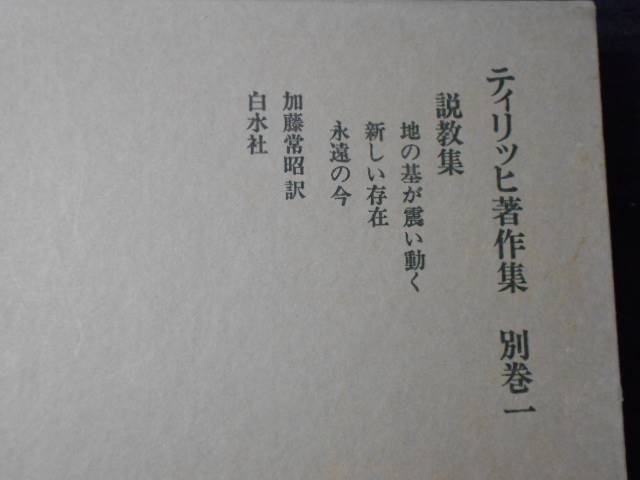 ティリッヒ著作集 別巻一
説教集
地の基が震い動く
新しい存在
永遠の今
加藤常昭訳
白水社